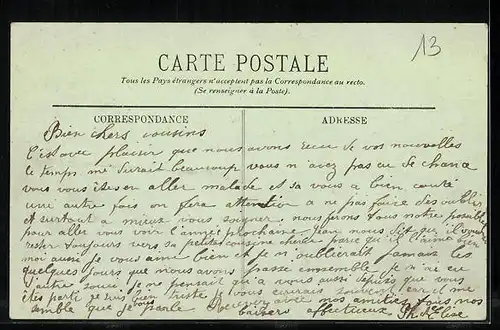 13
CARTE POSTALE
Tous les Pays étrangers n'acceptent pas la Correspondance au recto.
(Se renseigner à la Poste).
CORRESPONDANCE
ADRESSE
Bien chers cousins
C'est avec plaisir que nous avons recu de vos nouvelles
le temps me durait beaucoup vous n'avez pas eu de chance
vous vous êtes en aller malade et sa vous a bien couté
une autre fois on fera attention a ne pas faire des oublis
et surtout a mieux vous soigner. nous ferons tous notre possible
pour aller vous voir l'année prochaine Jean nous dit qu'il voudrait
rester toujours vers sa petite cousine cherie parce qu'il l'aime bien
moi aussi je vous aime bien et je n'oublierai jamais les
quelques jours que nous avons passé ensemble je n'ai eu
q'autre souci je ne pensait qu'a vous aussi depuis que vous
êtes parti je suis bien triste je vous ecrirais souvent car il me
semble que je parle avec nos amities tous nos
baisers affectueux